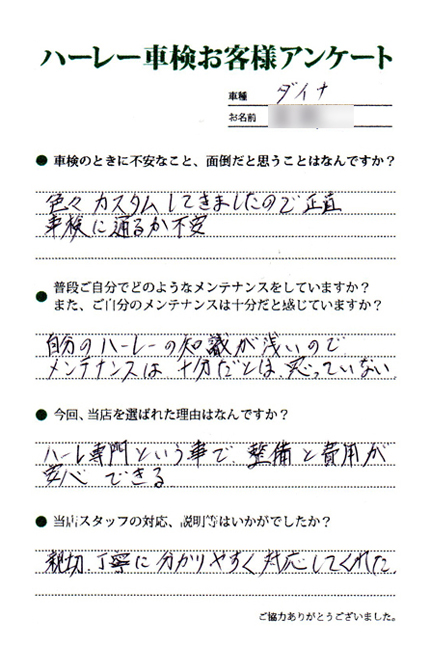 ハーレー車検お客様アンケート
車種 ダイナ
お名前
● 車検のときに不安なこと、面倒だと思うことはなんですか?
色々カスタムしてきましたので正直
車検に通るか不安
● 普段ご自分でどのようなメンテナンスをしていますか?
また、ご自分のメンテナンスは十分だと感じていますか?
自分のハーレーの知識が浅いので
メンテナンスは十分だとは思っていない
● 今回、当店を選ばれた理由はなんですか?
ハーレ専門という事で、整備と費用が
安心できる
● 当店スタッフの対応、説明等はいかがでしたか?
親切、丁寧に分かりやすく対応してくれた。
ご協力ありがとうございました。